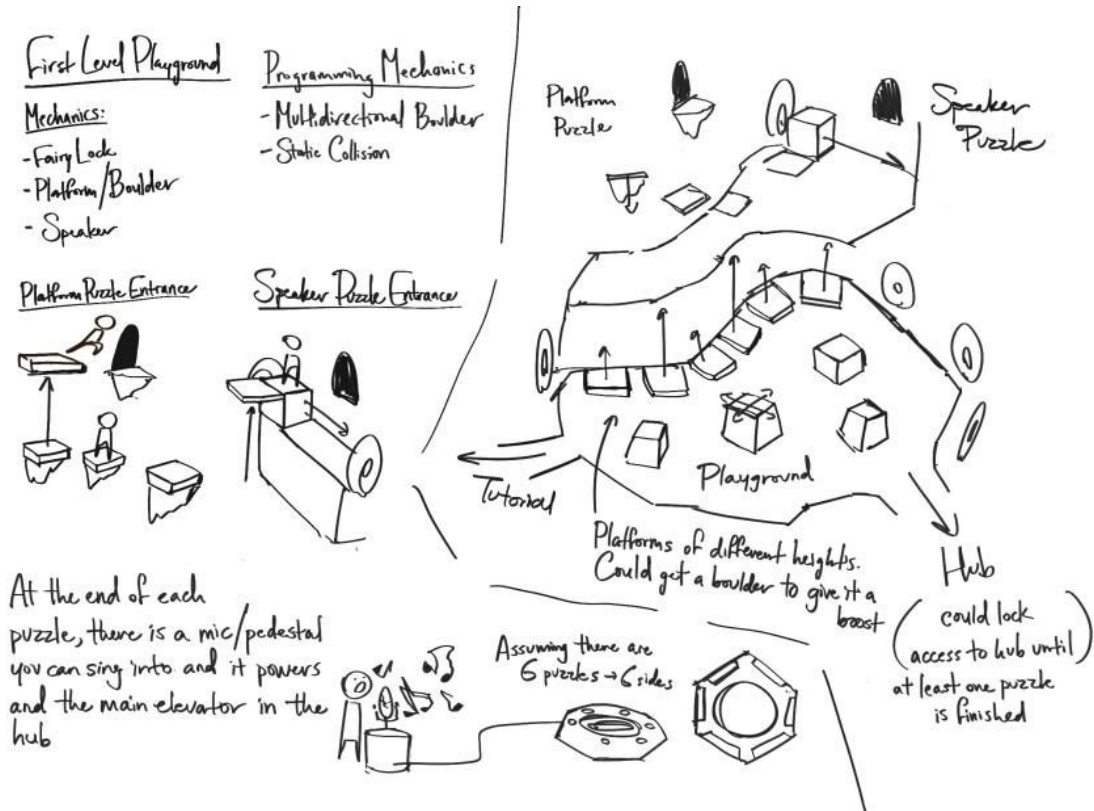 First Level Playground
Mechanics:
- Fairy Lock
- Platform/Boulder
- Speaker
Programming Mechanics
- Multidirectional Boulder
- Static Collision
Platform Puzzle Entrance
Speaker Puzzle Entrance
At the end of each
puzzle, there is a mic/pedestal
you can sing into and it powers
and the main elevator in the
hub
Platform
Puzzle
Speaker
Puzzle
Tutorial
Playground
Platforms of different heights.
Could get a boulder to give it a
boost
Hub
(could lock
access to hub until
at least one puzzle
is finished)
Assuming there are
6 puzzles → 6 sides